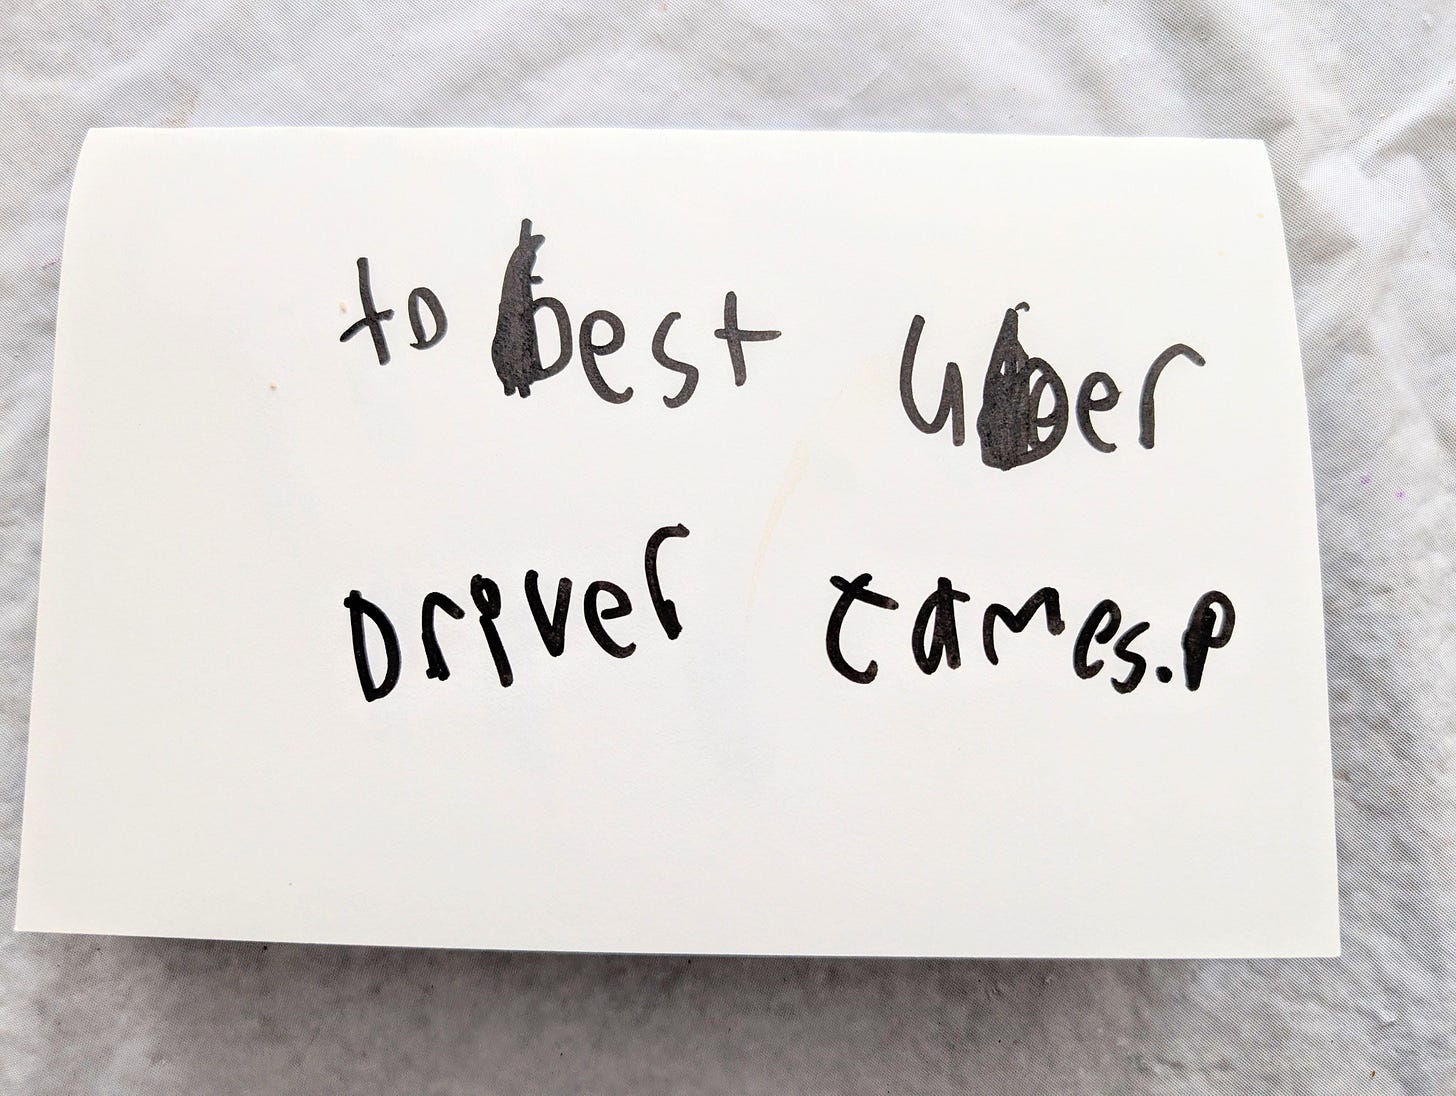 to best uber
Driver tames.P